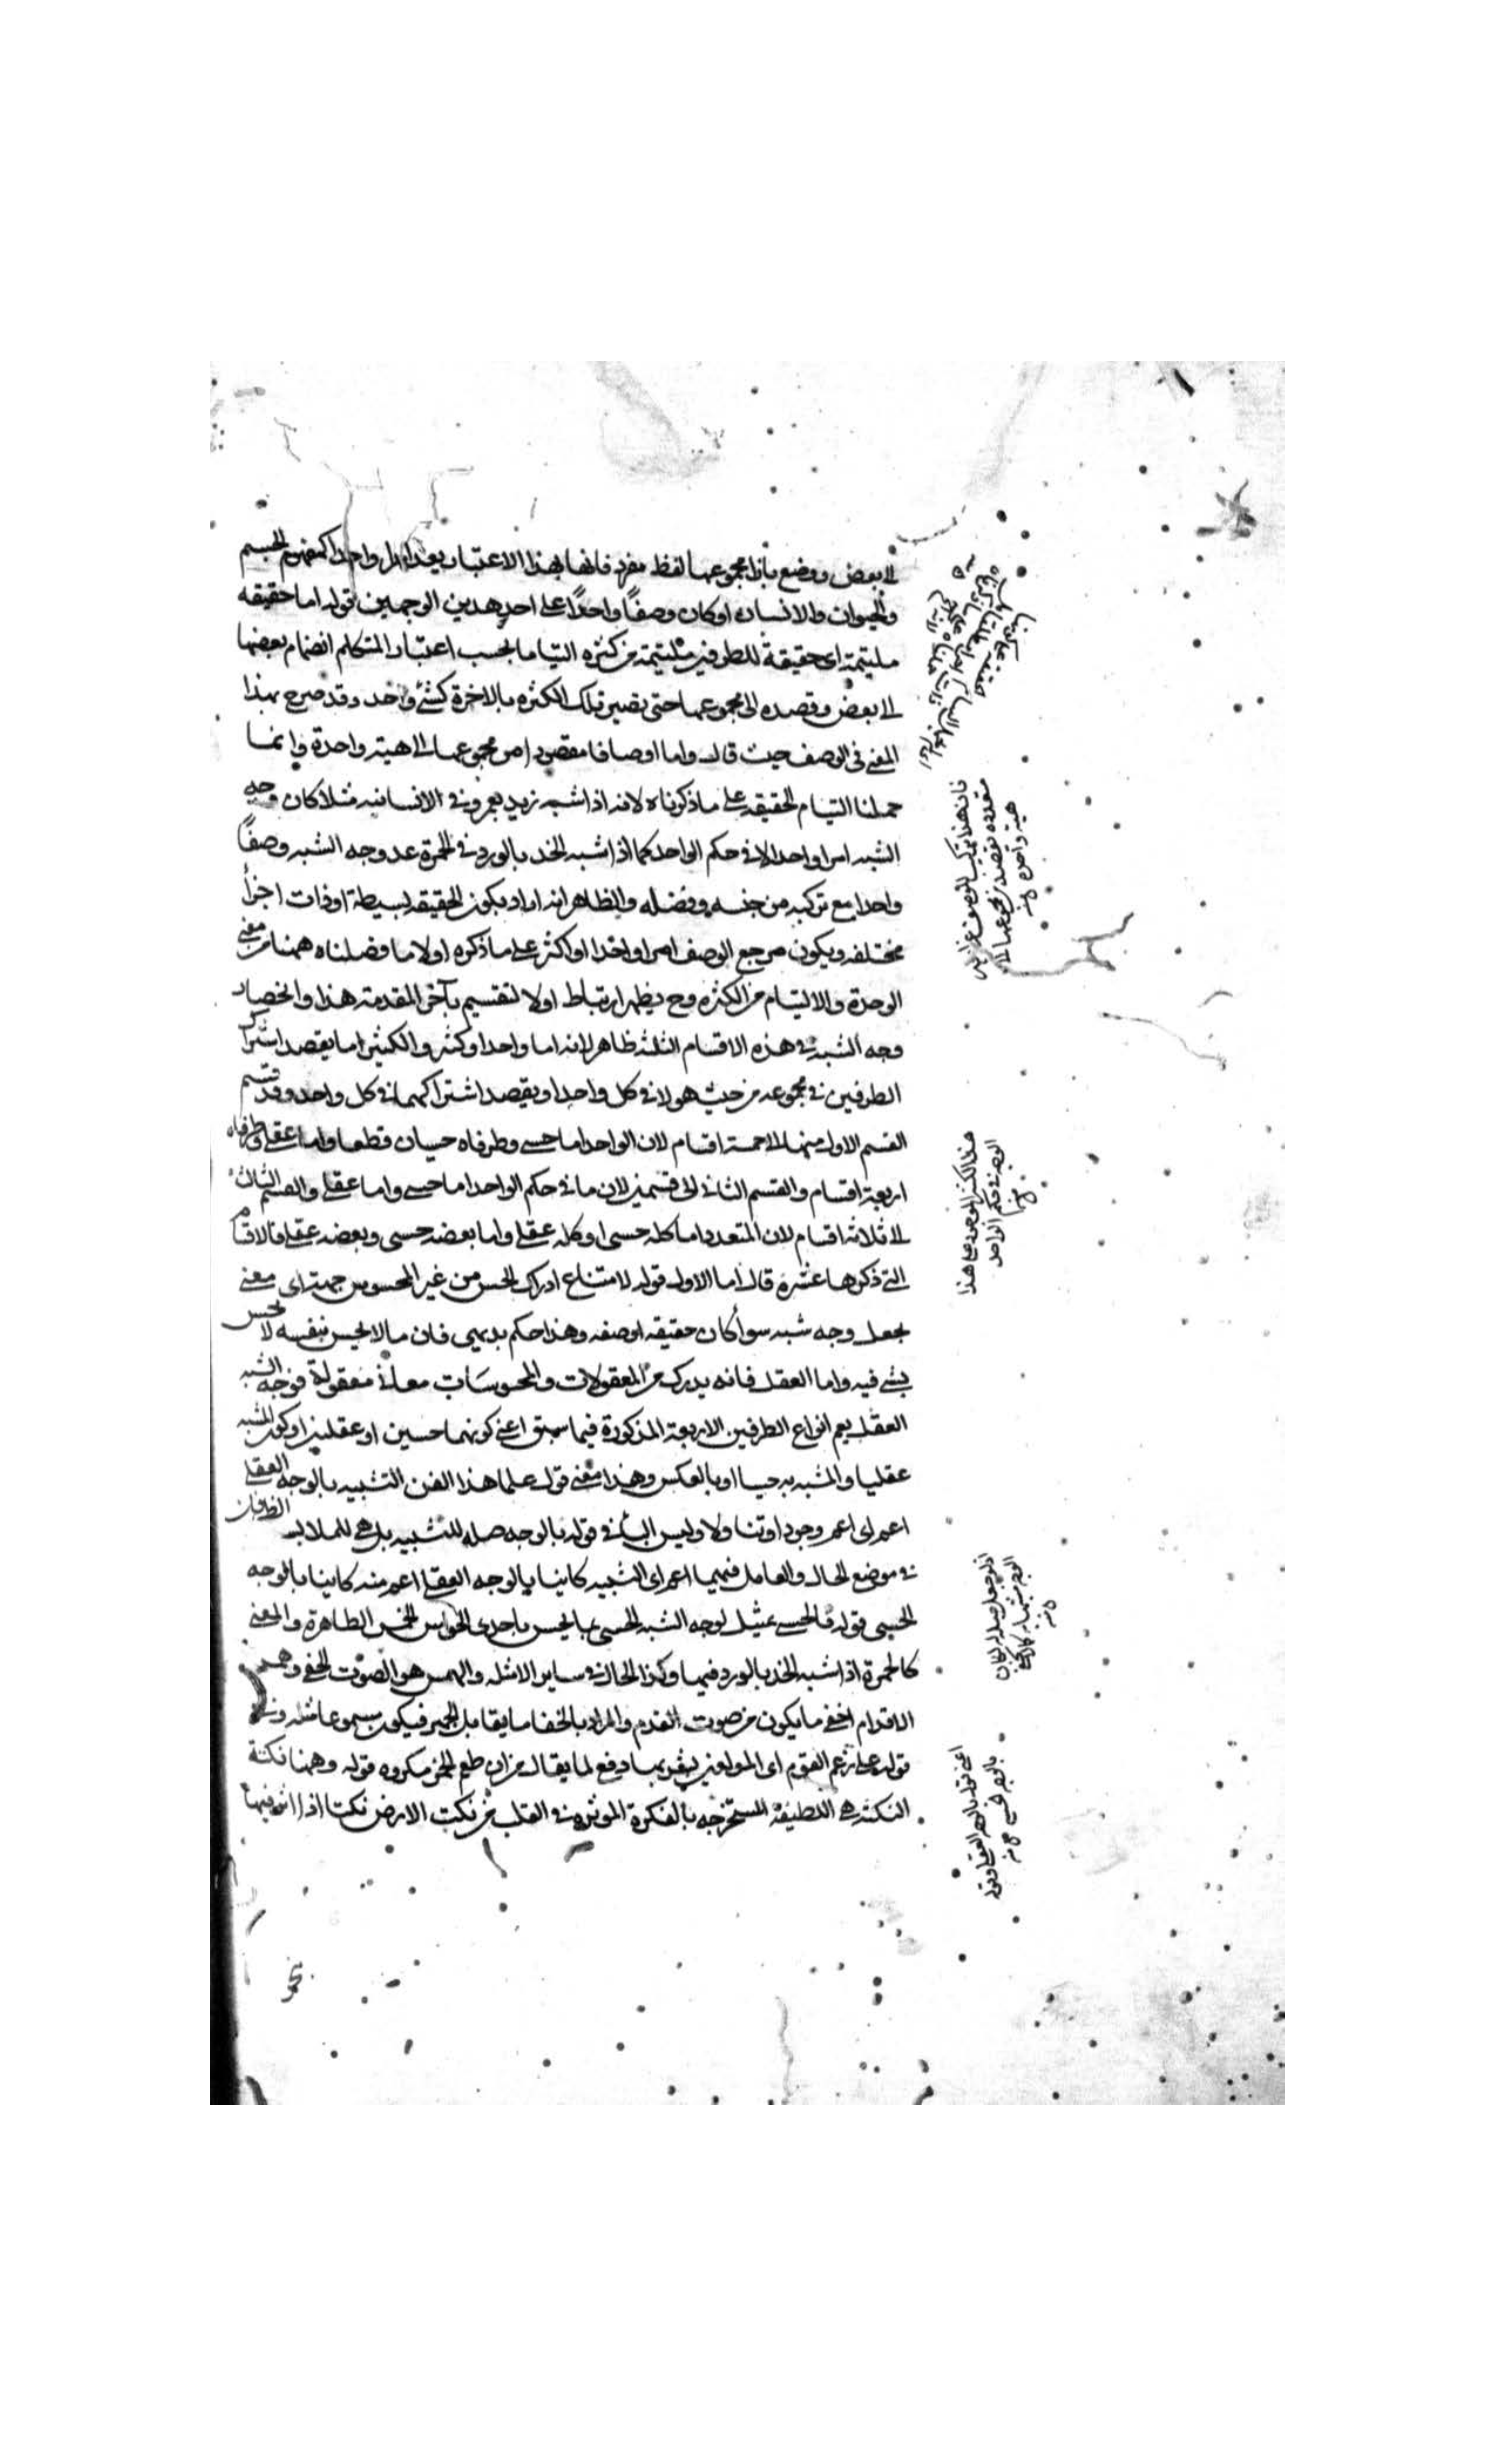 الى بعض ووضع بازا مجموعها لفظ مفرد فانها بهذا الاعتبار يعد امرا واحدا كمفهوم الجسم
والحيوان والانسان او كان وصفًا واحدًا على احد هذين الوجهين قوله اما حقيقه
ملتيمة اى حقيقة للطرفين ملتيمة من كثره التياما بحسب اعتبار المتكلم انضمام بعضها
الى بعض وقصده الى مجموعها حتى تصير تلك الكثره بالاخرة كشئ واحد وقد صرح بهذا
المعنى فى الوصف حيث قال واما اوصافا مقصودا من مجموعها الى هيئة واحدة وانما
حملنا التيام الحقيقه على ما ذكرناه لانه اذا شبه زيد بعمرو فى الانسانيه مثلا كان وجه
الشبه امرا واحدا لا فى حكم الواحد كما اذا شبه الخد بالورد فى الحمرة عد وجه الشبه وصفًا
واحدا مع تركبه من جنسه وفصله والظاهر انه اراد بكون الحقيقه بسيطة او ذات اجزأ
مختلفه وبكون مرجع الوصف امرا واحدا او اكثر على ما ذكره اولا ما فصلناه ههنا من معنى
الوحدة والالتيام من الكثره وح يظهر ارتباط اولا لتقسيم بآخر المقدمة هذا وانحصار
وجه الشبه فى هذه الاقسام الثلثه ظاهر لانه اما واحد او كثير والكثير اما يقصد اشتراك
الطرفين فى مجموعه من حيث هو لا فى كل واحد او يقصد اشتراكهما فى كل واحد وقد قسم
القسم الاول منها الى خمسة اقسام لان الواحد اما حسى وطرفاه حسيان قطعا واما عقلى وطرفاه
اربعة اقسام والقسم الثانى الى قسمين لان ما فى حكم الواحد اما حسى واما عقلى والقسم الثالث
الى ثلاثه اقسام لان المتعدد اما كله حسى او كله عقلى واما بعضه حسى وبعضه عقلى فالاقسام
التى ذكرها عشره قال اما الاول قوله لامتناع ادراك الحس من غير المحسوس جهة اى معنى
يجعل وجه شبه سوأ كان حقيقه او صفه وهذا حكم بديهى فان ما لا يحس بنفسه لا يحس
بشئ فيه واما العقل فانه يدرك من المعقولات والمحسوسات معانى معقولة فوجه الشبه
العقلى يعم انواع الطرفين الاربعة المذكورة فيما سبق اعنى كونهما حسين او عقلين او كون المشبه
عقليا والمشبه به حسيا او بالعكس وهذا معنى قول علما هذا الفن التشبيه بالوجه العقلى
اعم اى اعم وجودا وتناولا وليس البأ فى قوله بالوجه صله للتشبيه بل هى للملابسه
فى موضع الحال والعامل فيهما اعم اى التشبيه كاينا بالوجه العقلى اعم منه كاينا بالوجه
الحسى قوله فالحسى تمثيل لوجه الشبه الحسى بما يحس باحدى الحواس الخمس الظاهرة والمعنى
كالحمرة اذا شبه الخد بالورد فيها وكذا الحال فى ساير الامثله والهمس هو الصوت الخفى وهمس
الاقدام اخفى ما يكون من صوت القدم والمراد بالخفا ما يقابل الجهر فيكون مسموعا
قوله على زعم القوم اى المولعين بشربها دفع لما يقال من ان طعم الخمر مكروه قوله وههنا نكتة
النكتة هى اللطيفة المستخرجه بالفكرة الموثره فى القلب من نكت الارض نكتا اذا اثر فيها
فان هذا تركيب للوصف
متعدده يقصد من مجموعها الى
هيئة واحده
الوجه فى حكم الواحد